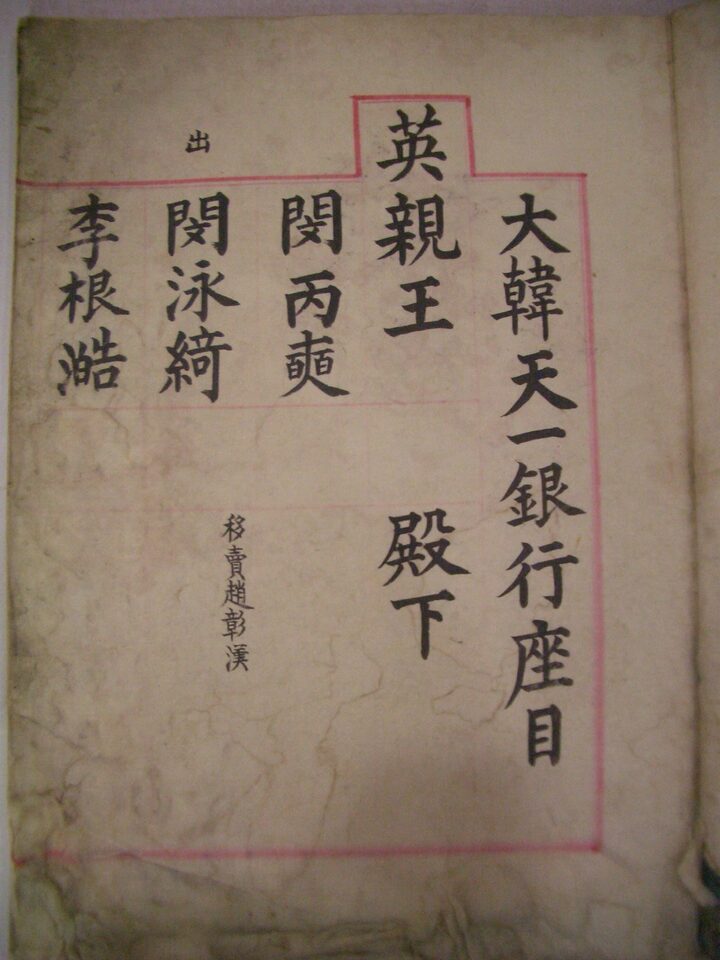 大韓天一銀行座目
英親王 殿下
閔丙奭
出 閔泳綺 移賣趙彰漢
李根澔